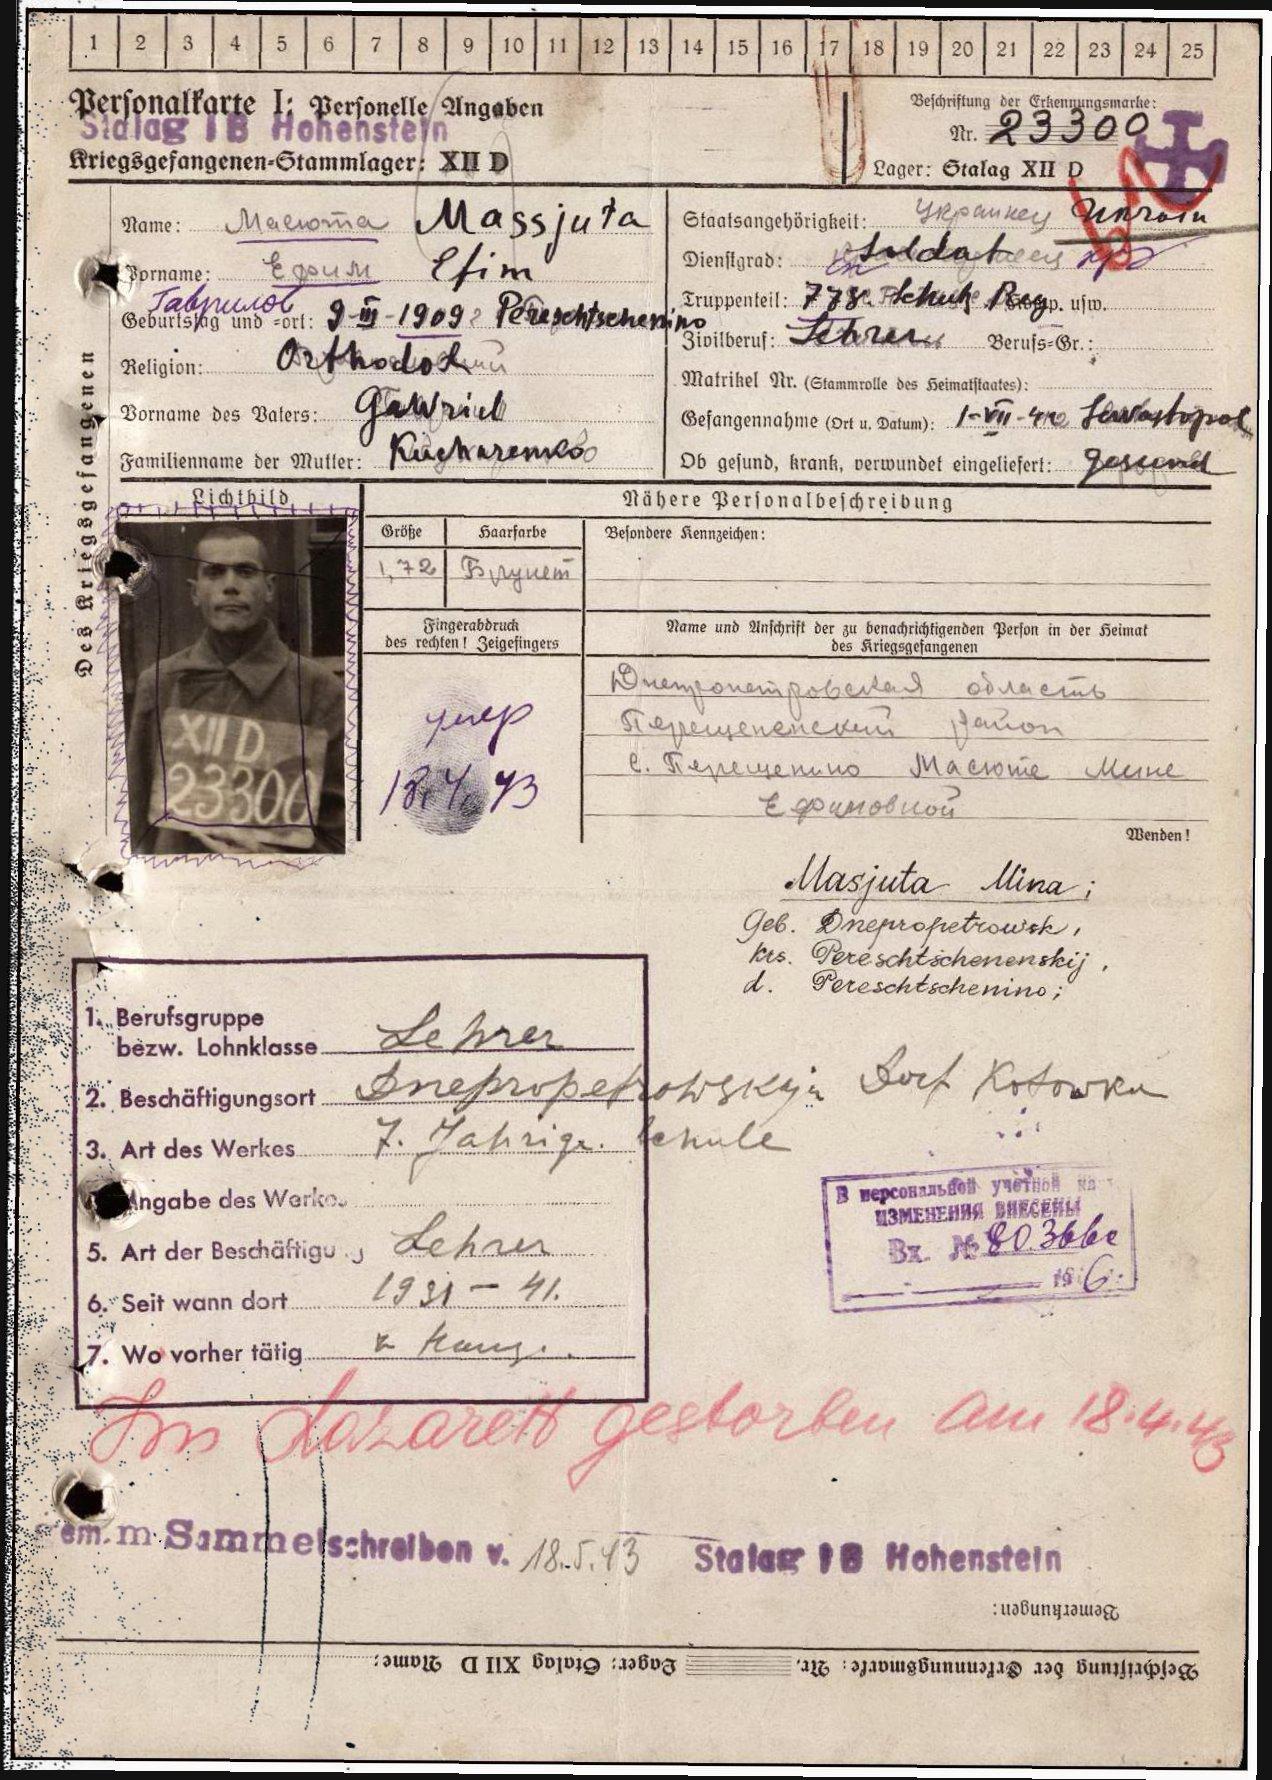 1 2 3 4 5 6 7 8 9 10 11 12 13 14 15 16 17 18 19 20 21 22 23 24 25
Personalkarte I: Personelle Angaben
Stalag I B Hohenstein
Kriegsgefangenen-Stammlager: XII D
Beschriftung der Erkennungsmarke:
Nr. 23300
Lager: Stalag XII D
Des Kriegsgefangenen
Name: Масюта Massjuta
Vorname: Ефим Efim
Гаврилов
Geburtstag und -ort: 9-III-1909 Pereschtschenino
Religion: Orthodox
Vorname des Vaters: Gawriel
Familienname der Mutter: Kucharenko
Staatsangehörigkeit: Украинец Ukrain
Dienstgrad: Soldat
Truppenteil: 778. Schutz Reg Komp. usw.
Zivilberuf: Lehrer Berufs-Gr.:
Matrikel Nr. (Stammrolle des Heimatstaates):
Gefangennahme (Ort u. Datum): 1-VII-42 Sewastopol
Ob gesund, krank, verwundet eingeliefert: gesund
Lichtbild
XII D
23300
Nähere Personalbeschreibung
Größe Haarfarbe Besondere Kennzeichen:
1,72 Брунет
Fingerabdruck
des rechten! Zeigefingers
умер
18.4.43
Name und Anschrift der zu benachrichtigenden Person in der Heimat
des Kriegsgefangenen
Днепропетровская область
Перещепенский район
с. Перещепино Масюте Мине
Ефимовной
Wenden!
Masjuta Mina;
Geb. Dnepropetrowsk,
krs. Pereschtschenenskij,
d. Pereschtschenino;
1. Berufsgruppe
bezw. Lohnklasse Lehrer
2. Beschäftigungsort Dnepropetrowskaja Dorf Kotowka
3. Art des Werkes 7. Jahrige. Schule
Angabe des Werkes
5. Art der Beschäftigung Lehrer
6. Seit wann dort 1931 - 41.
7. Wo vorher tätig
В персональной учетной
ИЗМЕНЕНИЯ ВНЕСЕНЫ
Вх. №
Im Lazarett gestorben am 18.4.43
Gem. m Sammelschreiben v. 18.5.43 Stalag I B Hohenstein
Bemerkungen:
Beschriftung der Erkennungsmarke: Nr. Lager: Stalag XII D Name: